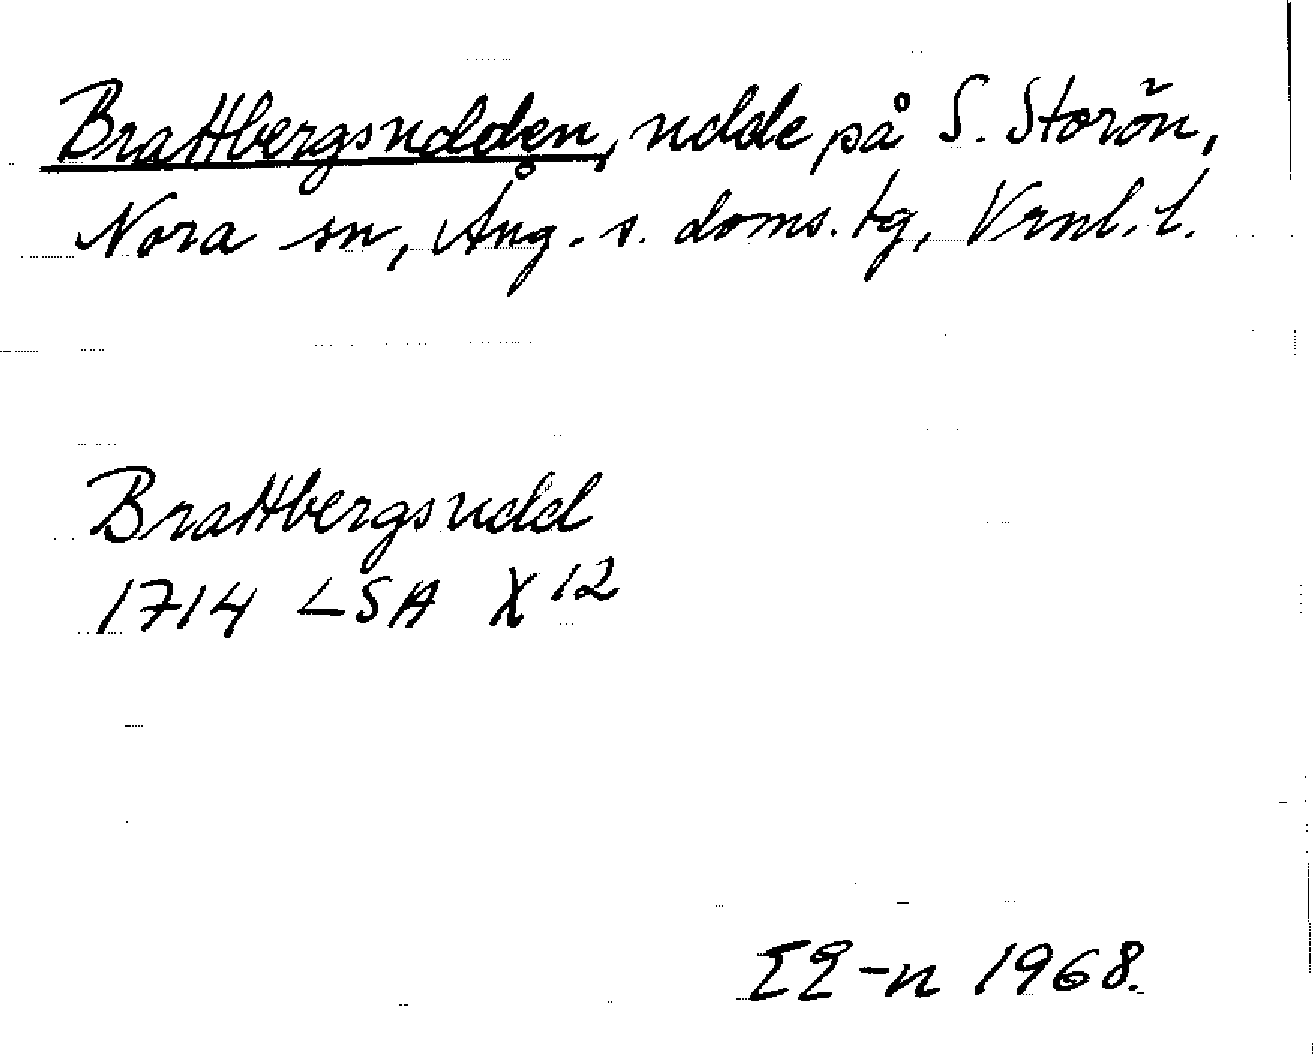 Brattbergsudden, udde på S. Storön,
Nora sn, Ång. s. doms. tg, Vrnl. l.
Brattbergsudd
1714 LSA X 12
-n 1968.